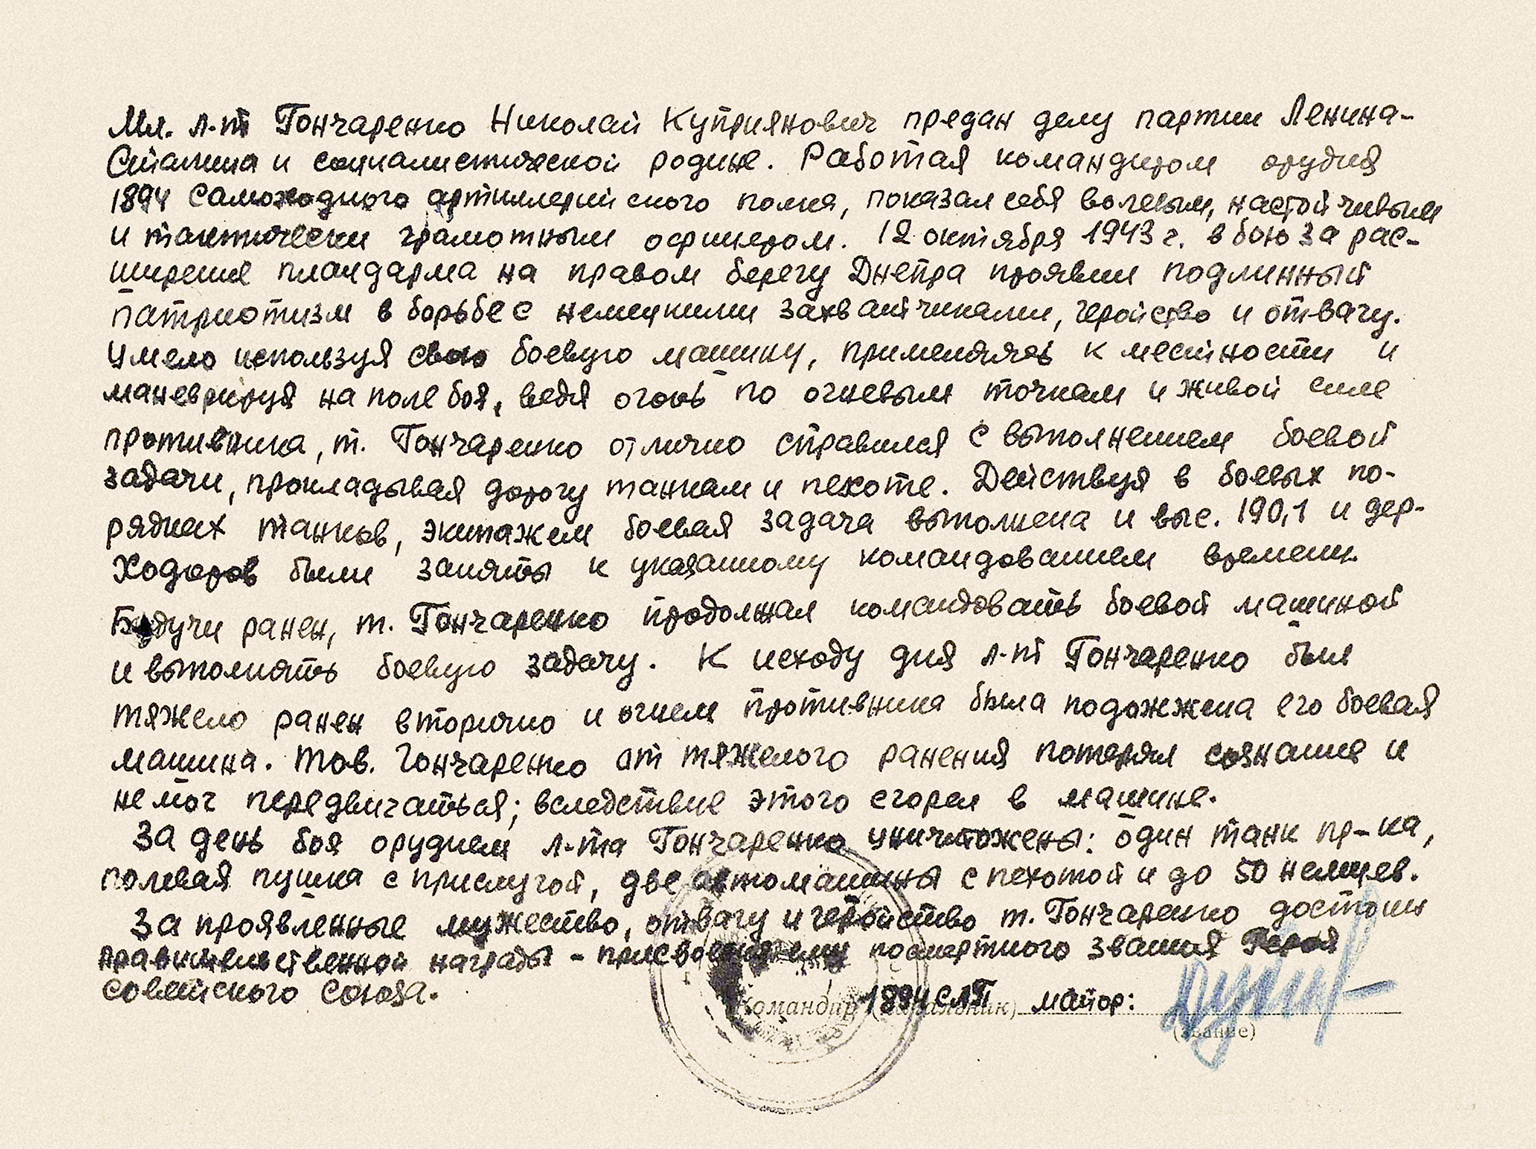 Мл. л-т Гончаренко Николай Куприянович предан делу партии Ленина-
Сталина и социалистической родине. Работая командиром орудия
1894 самоходного артиллерийского полка, показал себя волевым, настойчивым
и тактически грамотным офицером. 12 октября 1943 г. в бою за рас-
ширение плацдарма на правом берегу Днепра проявил подлинный
патриотизм в борьбе с немецкими захватчиками, геройство и отвагу.
Умело используя свою боевую машину, применяясь к местности и
маневрируя на поле боя, ведя огонь по огневым точкам и живой силе
противника, т. Гончаренко отлично справился с выполнением боевой
задачи, прокладывая дорогу танкам и пехоте. Действуя в боевых по-
рядках танков, экипажем боевая задача выполнена и выс. 190,1 и дер.
Ходоров были заняты к указанному командованием времени.
Будучи ранен, т. Гончаренко продолжал командовать боевой машиной
и выполнять боевую задачу. К исходу дня л-т Гончаренко был
тяжело ранен вторично и огнем противника была подожжена его боевая
машина. Тов. Гончаренко от тяжелого ранения потерял сознание и
не мог передвигаться; вследствие этого сгорел в машине.
За день боя орудием л-та Гончаренко уничтожены: один танк пр-ка,
полевая пушка с прислугой, две автомашины с пехотой и до 50 немцев.
За проявленные мужество, отвагу и геройство т. Гончаренко достоин
правительственной награды - присвоения ему посмертного звания Героя
Советского Союза.
Командир 1894 САП майор:
(звание)